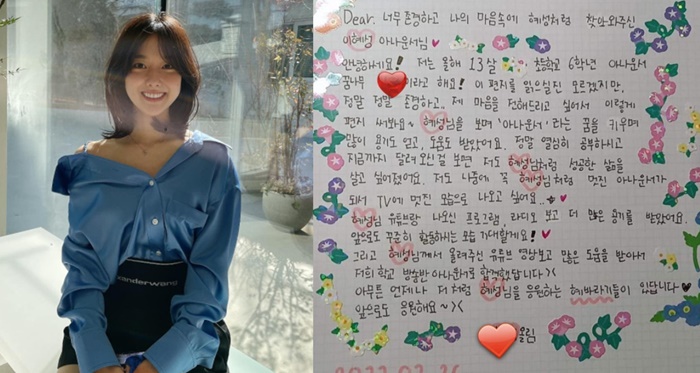 xanderwang
Dear. 너무 존경하고 나의 마음속에 혜성처럼 찾아와주신
이혜성 아나운서님♥
안녕하세요! 저는 올해 13살 초등학교 6학년 아나운서
꿈나무 이라고 해요! 이 편지를 읽으실진 모르겠지만,
정말 정말 존경하고, 제 마음을 전해드리고 싶어서 이렇게
편지 써봐요~ 혜성님을 보며 '아나운서' 라는 꿈을 키우며
많이 용기도 얻고, 도움도 받았어요. 정말 열심히 공부하시고
지금까지 달려오신걸 보면 저도 혜성님처럼 성공한 삶을
살고 싶어졌어요. 저도 나중에 꼭 혜성님처럼 멋진 아나운서가
되서 TV에 멋진 모습으로 나오고 싶어요..
혜성님 유튜브랑 나오신 프로그램, 라디오 보고 더 많은 용기를 받았어요.
앞으로도 꾸준히 활동하시는 모습 기대할게요! ♥
그리고 혜성님께서 올려주신 유튜브 영상보고 많은 도움을 받아서
저희 학교 방송반 아나운서를 합격했답니다><
아무튼 언제나 저처럼 혜성님을 응원하는 혜바라기들이 있답니다♥
앞으로도 응원해요~><
♥올림